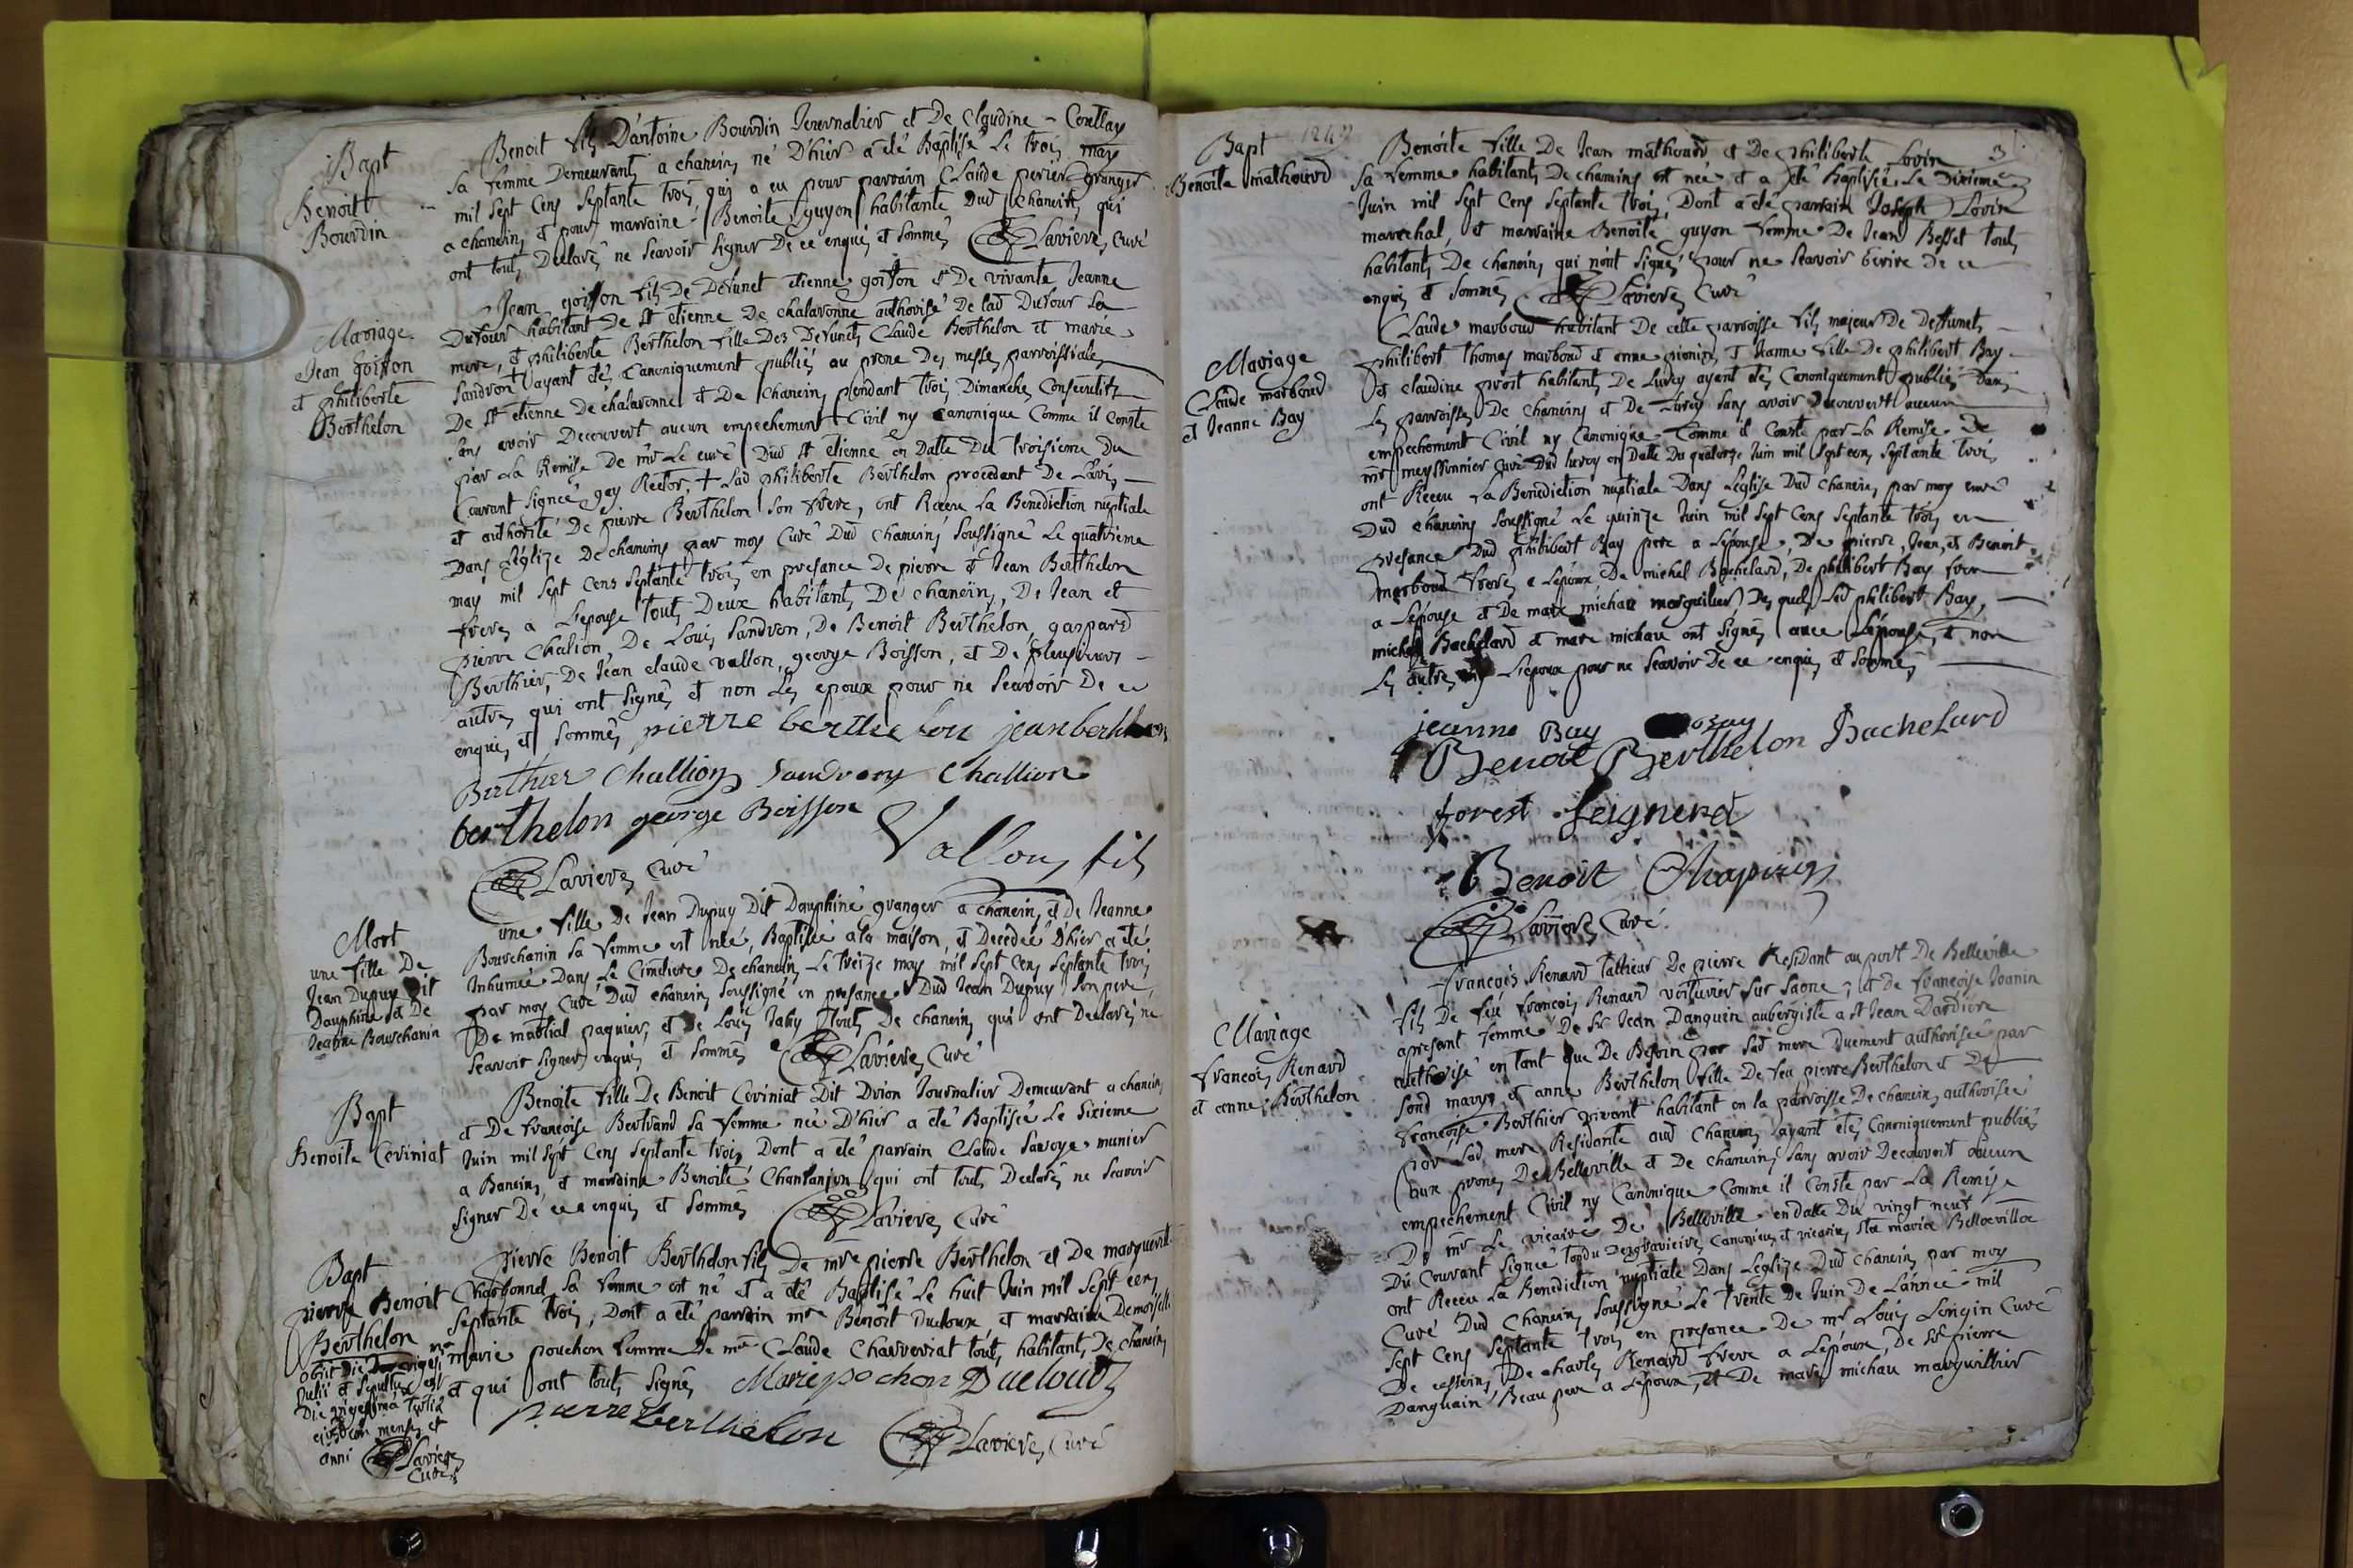 Bapt
Benoit
Bourdin
Benoit fils D'antoine Bourdin Journalier et De Claudine Coullay
sa femme Demeurants a chanein, né D'hier a été Baptisé Le trois may
mil sept Cens septante trois, qui a eu pour parrain Claude perier granger
a chanein, et pour marraine Benoite guyon habitante Dud chanein, qui
ont touts Declarés ne sçavoir signer De ce enquis et sommés Lavieres Curé
Mariage
Jean goiffon
et philiberte
Berthelon
Jean goiffon fils De Defunct etienne goiffon et De vivante Jeanne
Dufour habitant De st etienne De chalaronne authorisé De lad Dufour sa
mere, et philiberte Berthelon fille Des Defuncts Claude Berthelon et marie
sandron ayant étés Canoniquement publiés au prone Des messes parroissiales
De st etienne de chalaronne et De chanein, pendant trois Dimanches Consecutifs
sans avoir Decouvert aucun empechement Civil ny Canonique Comme il Conste
par La Remise De mr Le curé Dud st etienne en Datte Du troisieme Du
Courant signée gay Rector, + Lad philiberte Berthelon procedant De L'avis
et authorité De pierre Berthelon son frere, ont Receu La Benediction nuptiale
Dans L'église De chanein, par moy Curé Dud chanein, soussigné Le quatrieme
may mil sept Cens septante trois en presance De pierre et Jean Berthelon
freres a L'epouse touts Deux habitants De chanein, De Jean et
pierre Chalion, De Louis sandron, De Benoit Berthelon, gaspard
Berthier, De Jean claude vallon, george Boisson, et De plusieurs
autres qui ont signés et non Les epoux pour ne sçavoir De ce
enquis et sommés pierre berthelon jean berthelon
Berthier Challion sandron Challion
berthelon george Boisson
Vallon fils
Lavieres Curé
Mort
une fille De
Jean Dupuy Dit
Dauphiné et De
Jeanne Bourchanin
une fille De Jean Dupuy Dit Dauphiné granger a chanein, et De Jeanne
Bourchanin sa femme est née, Baptisée a la maison, et Decedée D'hier a été
Inhumée Dans Le Cimetiere De chanein, Le treize may mil sept Cens septante trois
par moy Curé Dud chanein, soussigné en presance Dud Jean Dupuy son pere,
De martial paquier, et De Louis Jaby touts De chanein, qui ont Declarés ne
sçavoir signer enquis et sommés Lavieres Curé
Bapt
Benoite Ceviniat
Benoite fille De Benoit Ceviniat Dit Drion Journalier Demeurant a chanein,
et De francoise Bertrand sa femme née D'hier a été Baptisée Le sixieme
Juin mil sept Cens septante trois, Dont a été parrain Claude savoye munier
a Banein, et marraine Benoite Chantanion qui ont touts Declarés ne sçavoir
signer De ce enquis et sommés Lavieres Curé
Bapt
pierre Benoit
Berthelon
pierre Benoit Berthelon fils De mre pierre Berthelon et De marguerite
Charbonnel sa femme est né et a été Baptisé Le huit Juin mil sept cens
septante trois, Dont a été parrain mre Benoit Ducloux et marraine Demoiselle
marie pouchon femme De mre Claude Charveriat touts habitants De chanein,
et qui ont touts signés Marie pochon Ducloux
pierre berthelon Lavieres Curé
obiit Die
Julii et sepultus est
Die vigesima tertia
ejusdem mensis et
anni Lavieres
Curé
3
Bapt
Benoite mathourd
Benoite fille De Jean mathourd et De philiberte Lovin
sa femme habitants De chanein, est née et a été Baptisée Le Dixieme
Juin mil sept Cens septante trois, Dont a été parrain Joseph Lovin
marechal, et marraine Benoite guyon femme De Jean Besset touts
habitants De chanein, qui n'ont signés pour ne sçavoir écrire de ce
enquis et sommés Lavieres Curé
Mariage
Claude marboud
et Jeanne Bay
Claude marboud habitant De cette parroisse fils majeur De Deffuncts
philibert thomas marboud et anne pionin, et Jeanne fille De philibert Bay
et claudine prost habitants De Lurcy ayant étés Canoniquement publiés Dans
Les parroisses De chanein, et De Lurcy sans avoir Decouvert aucun
empechement Civil ny Canonique Comme il Conste par La Remise De
mr meyssonnier Curé Dud Lurcy en Datte Du quatorze Juin mil sept cens septante trois,
ont Receu La Benediction nuptiale Dans L'église Dud chanein, par moy curé
Dud chanein, soussigné Le quinze Juin mil sept Cens septante trois en
presance Dud philibert Bay pere a L'épouse, De pierre, Jean, et Benoit
marboud freres a L'époux, De michel Bachelard, De philibert Bay frere
a L'épouse et De marc michau marguilier Des quels Led philibert Bay,
michel Bachelard et marc michau ont signés avec L'épouse, et non
Les autres ny L'epoux pour ne sçavoir De ce enquis et sommés
jeanne Bay Bay
Benoit Berthelon Bachelard
forest seignerd
Benoit Chapuis
Lavieres Curé.
Mariage
francois Renard
et anne Berthelon
francois Renard tallieur De pierre Residant au port De Belleville
fils De feu francois Renard voiturier sur saone, et de francoise Jeanin
apresent femme De sr Jean Danguin aubergiste a st Jean Dardiere
authorisé en tant que De Besoin par Lad mere Duement authorisée par
sond mary, et anne Berthelon fille De feu pierre Berthelon et De
francoise Berthier vivant habitant en la parroisse De chanein, authorisée
par Lad mere Residante aud Chanein, ayant étés Canoniquement publiés
aux prones De Belleville et De chanein, sans avoir Decouvert aucun
empechement Civil ny Canonique Comme il Conste par La Remise
De mr Le vicaire De Belleville en datte Du vingt neuf
Du Courant signée Canonicus et vicarius stæ mariæ Bellævillæ
ont Receu La Benediction nuptiale Dans L'eglize Dud chanein, par moy
Curé Dud Chanein, soussigné Le trente De Juin De L'année mil
sept Cens septante trois, en presance De mr Louis Longin Curé
De cesseins, De charles Renard frere a L'époux, De sr pierre
Danguain Beau pere a L'époux, et De marc michau marguillier